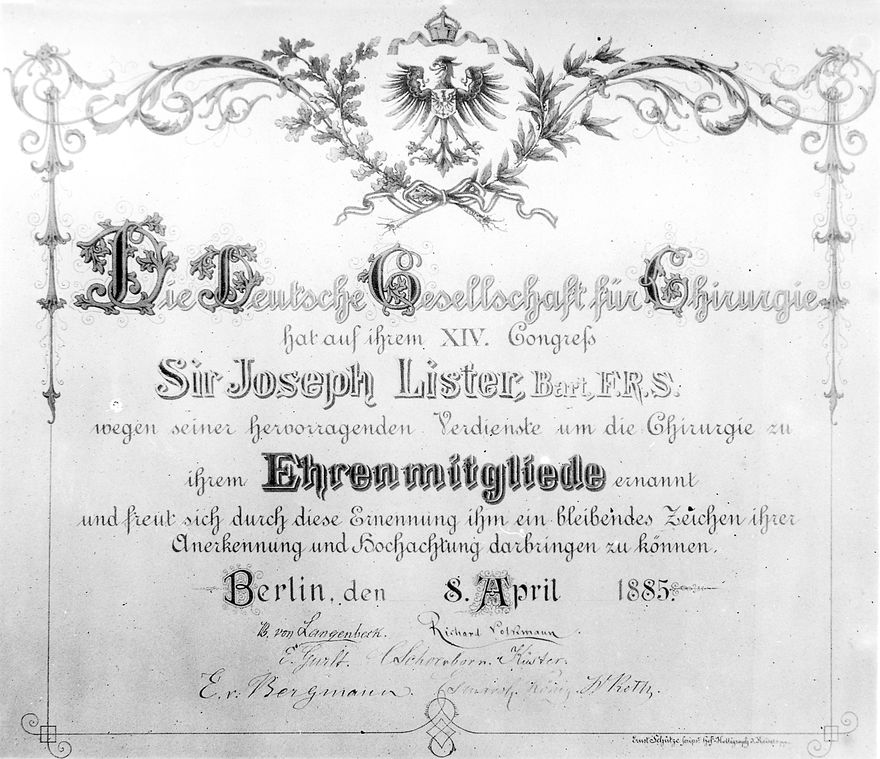 Die Deutsche Gesellschaft für Chirurgie
hat auf ihrem XIV. Congreſs
Sir Joseph Lister, Bart., F.R.S.
wegen seiner hervorragenden Verdienste um die Chirurgie zu
ihrem Ehrenmitgliede ernannt
und freut sich durch diese Ernennung ihm ein bleibendes Zeichen ihrer
Anerkennung und Hochachtung darbringen zu können.
Berlin, den 8. April 1885.
B. von Langenbeck. Richard Volkmann
E. Gurlt. Schoenborn. Küster.
E. v. Bergmann Esmarch König W Roth.
Ernst Schütze scrips.